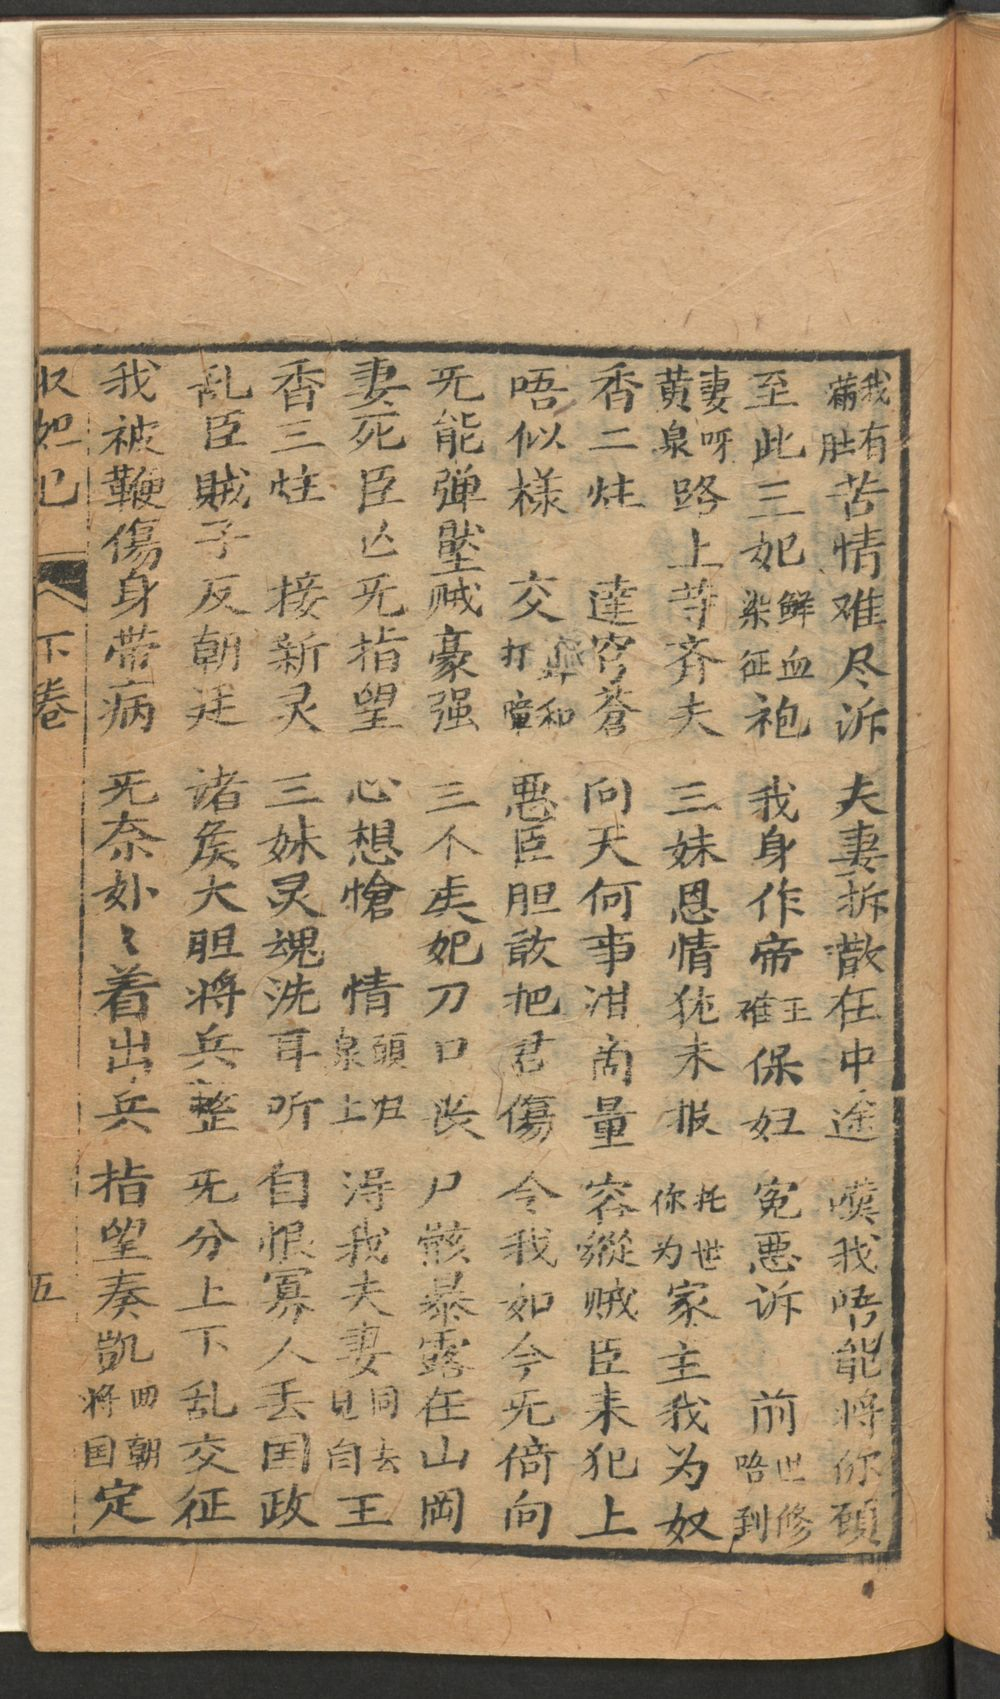 我有滿肚苦情难尽诉 夫妻拆散在中途 嘆我唔能将你顾
至此三妃鲜血染征袍 我身作帝王难保妇 冤恶诉 前世修唔到
妻呀黄泉路上等齐夫 三妹恩情犹未报 托世你为家主我为奴
香二炷 達穹蒼 问天何事泔商量 容縱贼臣来犯上
唔似様 交和打 悪臣胆敢把君傷 令我如今旡倚向
旡能弹壓贼豪强 三个贵妃刀口丧 尸骸暴露在山岡
妻死臣亡旡指望 心想愴 情 頭上 得我夫妻同去見自王
香三炷 接新灵 三妹灵魂洗耳听 自恨寡人丢国政
乱臣贼子反朝廷 诸矦大胆将兵整 旡分上下乱交征
我被鞭傷身带病 旡奈处〻着出兵 指望奏凯回朝将国定
収妲己 下卷 五